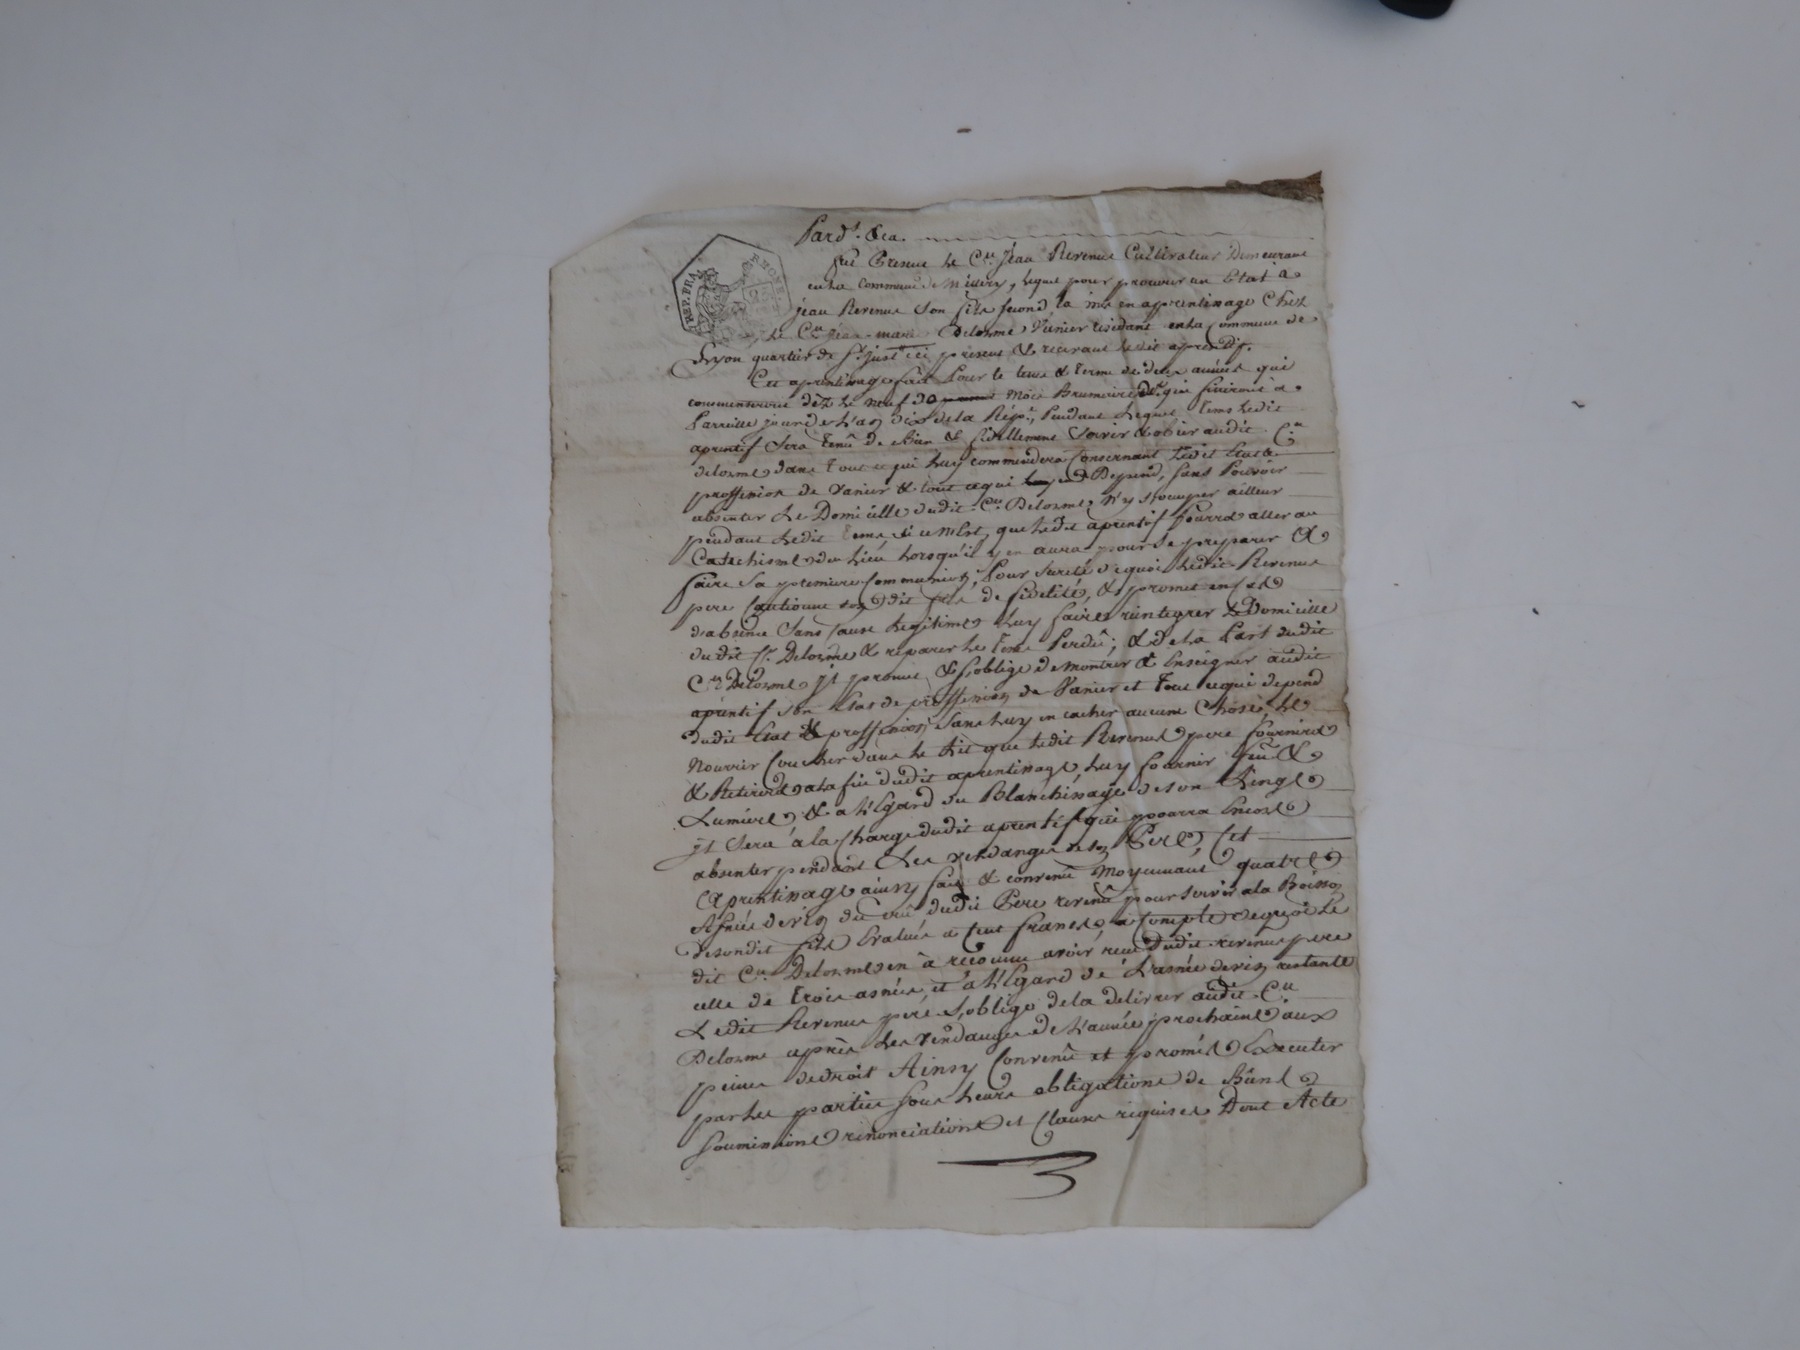 REP. FRA.
RHONE
Pard.t &ca.
fut Presant le C.en Jéan Revenus Cultivateur Demeurant
en la Commune de Millery, lequel pour procurer un Etat a
jean Revenus Son fils second, la mis en apprentissage Chez
le C.en jéan marie Delorme Vanier residant en la Commune de
Lyon quartier de St. just ici présent & recevant ledit aprentif.
Cet aprentissage fait Pour le tems & terme de deux années qui
commenceront dèz le neuf du mois Brumaire d.er qui finiront à
Pareille jour de L'an Dix de la Rép.e, Pendant lequel tems ledit
aprentif sera tenû de Bien & fidellement servir & obéir audit C.en
delorme dans tout ce qui luy commendera Consernant ledit Etat &
proffession de Vanier & tout ce qui en Dépend, sans Pouvoir
absenter le Domicille dudit C.en Delorme, N'y s'ocuper ailleur
pendant ledit tems, si ce n'Est que ledit aprentif pourra aller au
Catechisme du Lieu lorsqu'il y en aura pour se préparer &
faire sa premiere Communion, Pour sureté de quoi ledit Revenus
pere Cautionne son dit fils de fidelité, & promet en cas
d'absence Sans Cause legitime luy faire reintegrer le Domicille
dudit C.n Delorme & réparer le tems Perdû; & de la Part dudit
C.en Delorme jl promet & s'oblige de montrer & Enseigner audit
aprentif son Etat de proffession de Vanier et tout ce qui depend
dudit Etat & proffession Sans luy en cacher aucune Chose, le
Nourrir Coucher dans le Lit que ledit Revenus pere fournira
& Retirera a la fin dudit aprentissage, luy fournir feu &
Lumiere & a L'Egard du Blanchissage de son Linge
jl Sera à la Charge dudit aprentif qui pourra Encore
absenter pendant les vendanges de son Pere, Cet
aprentissage ainsy fait & convenû moyennant quatre
Asnées de vin du crû dudit Pere revenû pour servir a la Boisson
de sondit fils Evaluée a Cent francs, a compte de quoi le
dit C.en Delorme en à reconnu avoir recu dudit revenus pere
celle de trois asnées, et à L'Egard de L'asnée de vin restante
Ledit Revenus pere s'oblige de la delivrer audit C.en
Delorme après les vendanges de L'année prochaine aux
peines de droit Ainsy Convenû et promis Executer
par les parties sous leurs obligations de Biens
soumissions rénonciations et Clauses requises Dont Acte